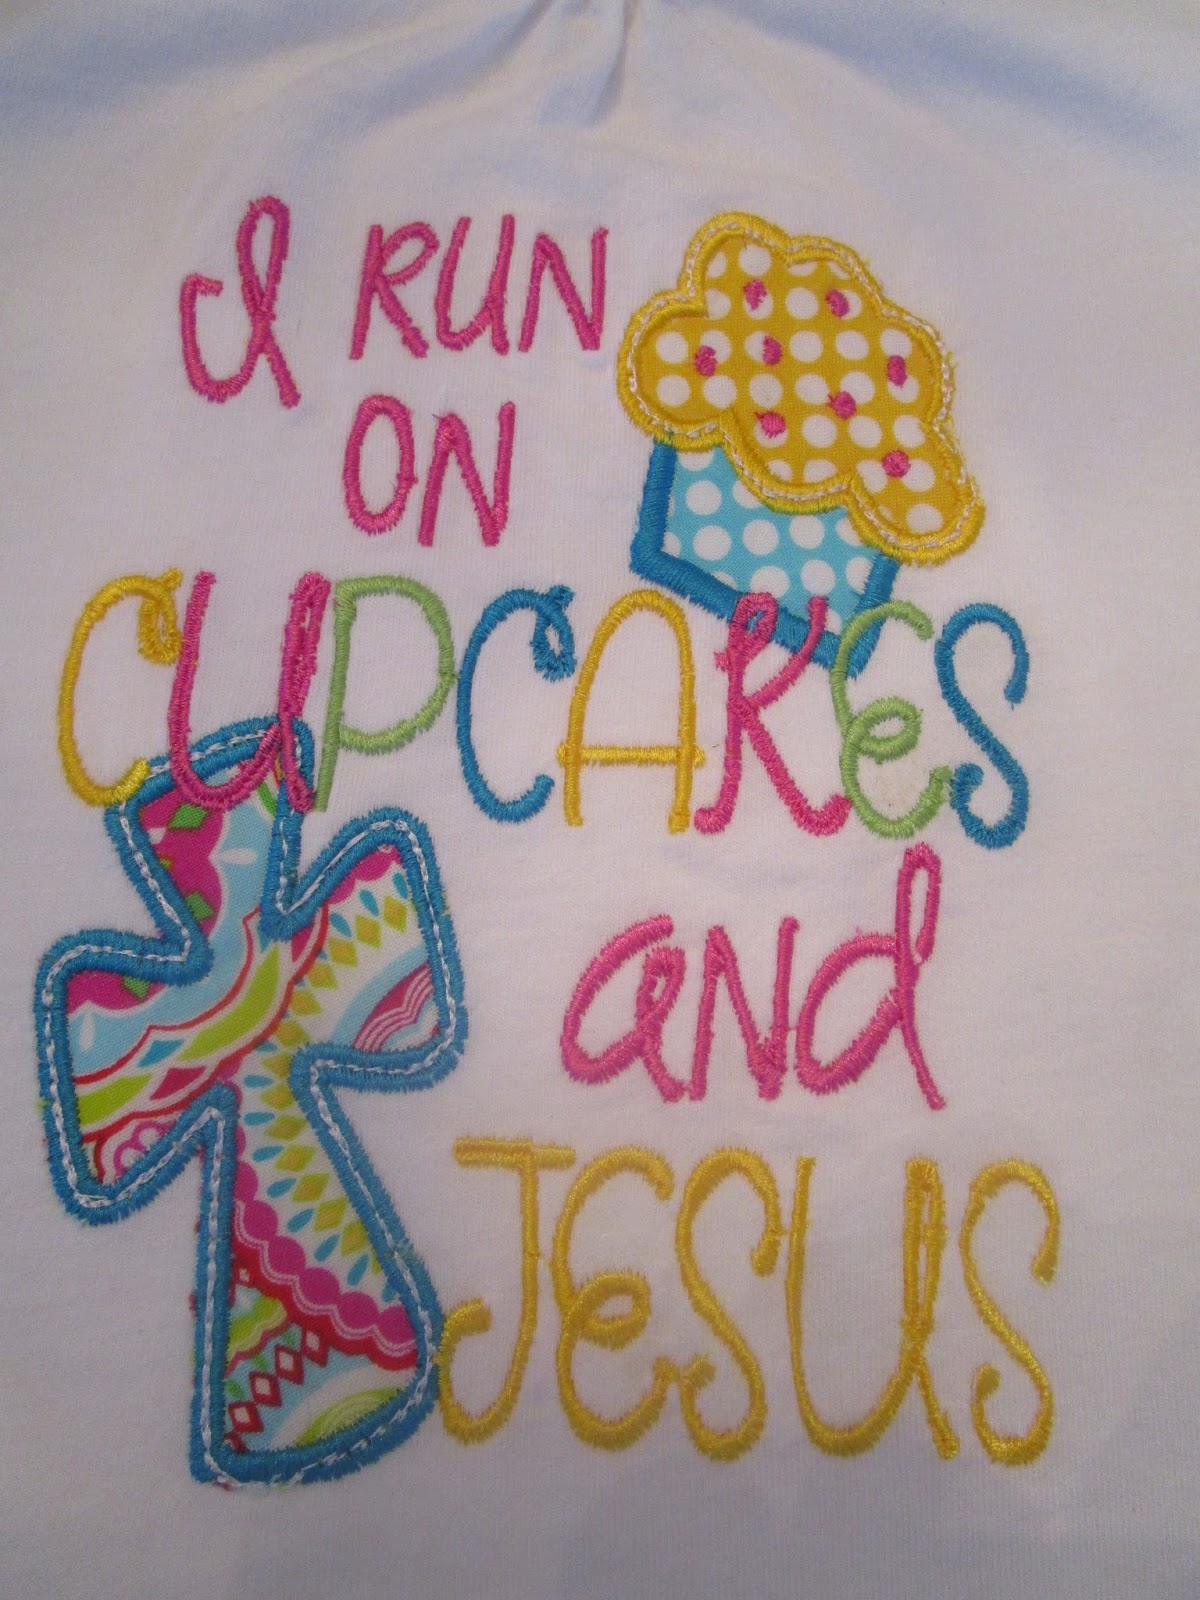 I RUN
ON
CUPCAKES
and
JESUS